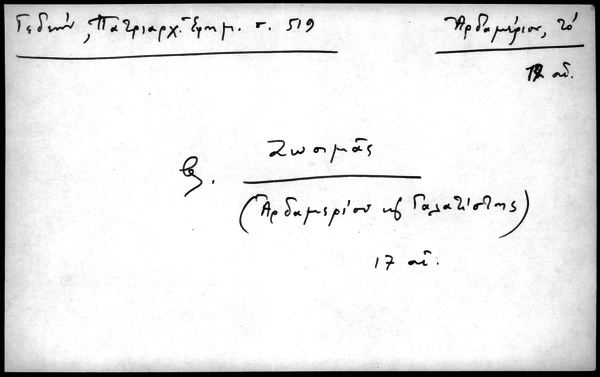 Γεδεών, Πατριαρχ. Εφημ. σ. 519
Ἀρδαμέριον, τό
12 αἰ.
Ζωσιμᾶς
(Ἀρδαμερίου κ Γαλατίστης)
17 αἰ.